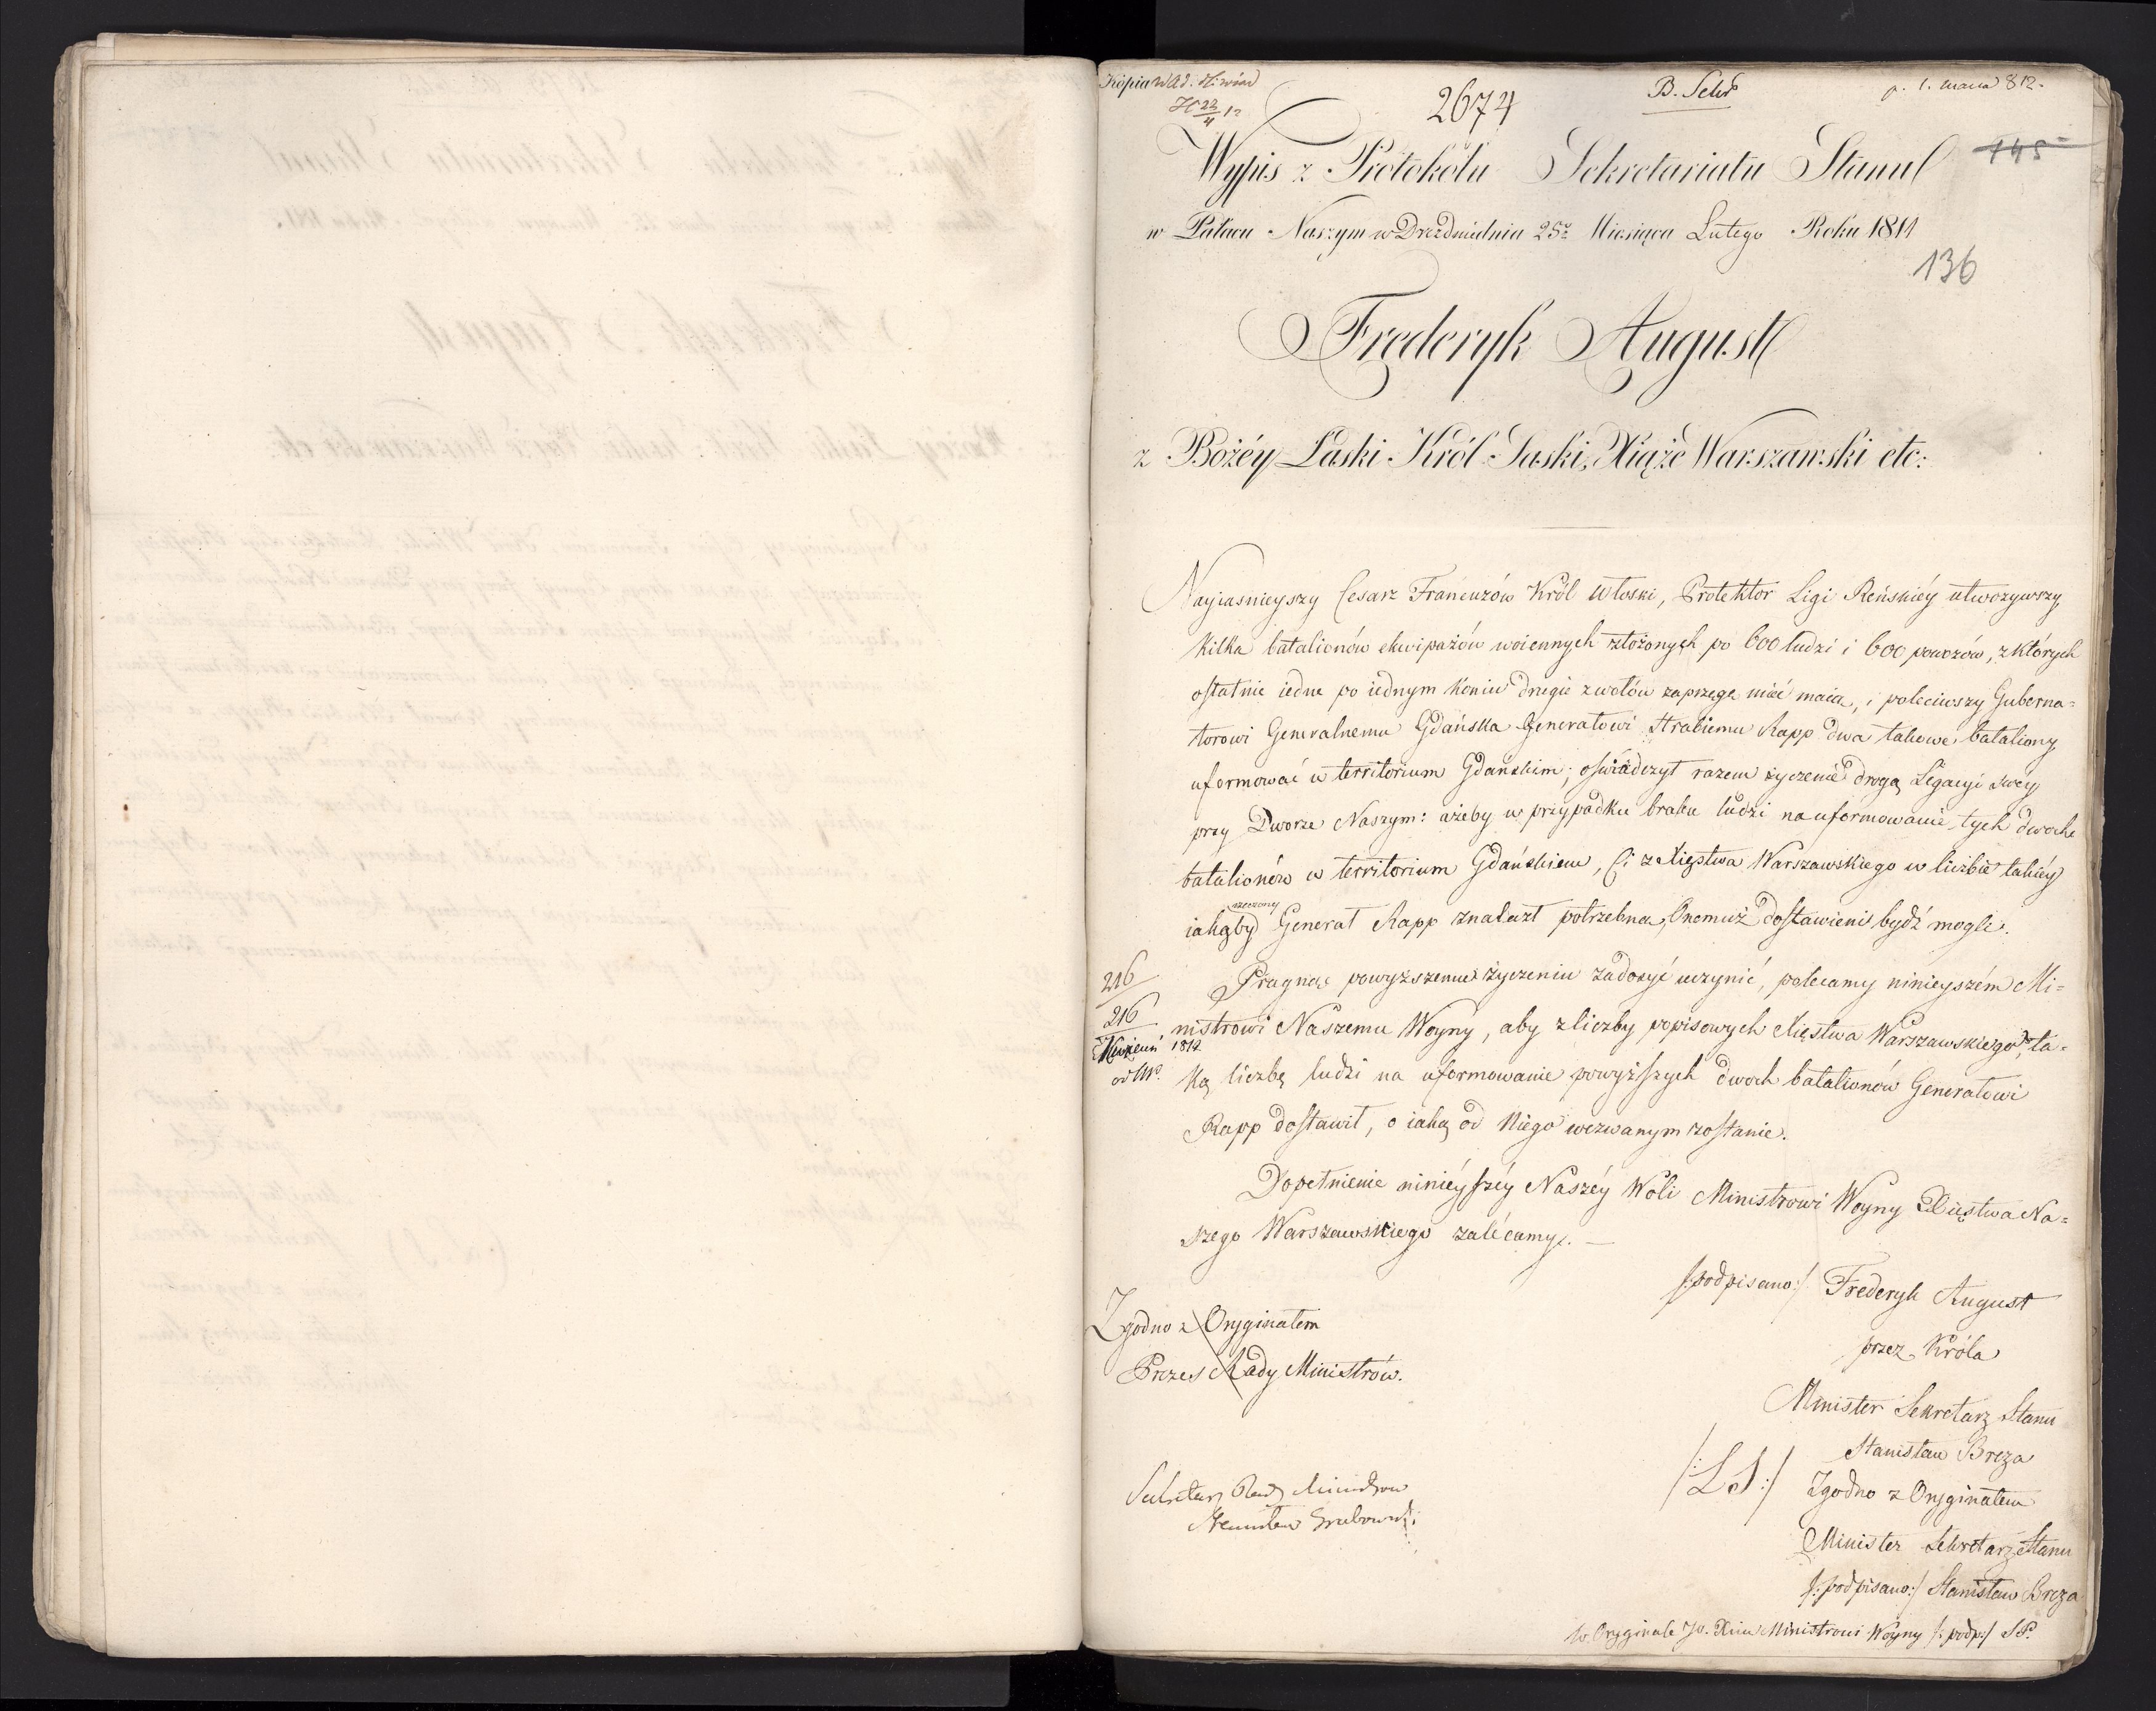 Kopia w Ad.
2674
B. Sekr
p. 1. marca 812.
Wypis z Protokółu Sekretariatu Stanu
145
w Pałacu Naszym w Dreźnie dnia 25º Miesiąca Lutego Roku 1811
136
Frederyk August
z Bożéy Łaski Król Saski, Xiąże Warszawski etc:
Nayiasnieyszy Cesarz Francuzów Król Włoski, Protektor Ligi Reńskiéy utworzywszy
kilka batalionów ekwipażów woiennych złożonych po 600 ludzi i 600 powozów, z których
ostatnie iedne po iednym koniu drugie z wołów zaprzęgę mieć maią, i poleciwszy Guberna=
torowi Generalnemu Gdańska Generałowi Hrabiemu Rapp dwa takowe bataliony
uformować w territorium Gdańskim; oświadczył razem życzenie drogą Legacyi swéy
przy Dworze Naszym: ażeby w przypadku braku ludzi na uformowanie tych dwoch
batalionów w territorium Gdańskiem, Ci z Xięstwa Warszawskiego w liczbie takiéy
rzeczony
iakąby Generał Rapp znalazł potrzebną, Onemuż dostawieni bydź mogli.
216
Pragnąc powyższemu życzeniu zadosyć uczynić, polecamy ninieyszém Mi=
216
nistrowi Naszemu Woyny, aby z liczby popisowych Xięstwa Warszawskiego, ta=
Kwiecień 1812
ką liczbę ludzi na uformowanie powyższych dwoch batalionów Generałowi
Rapp dostawił, o iaką od Niego wezwanym zostanie.
Dopełnienie niniéyszéy Naszéy Woli Ministrowi Woyny Xięstwa Na=
szego Warszawskiego zalécamy. —
/:podpisano:/ Frederyk August
Zgodno z Oryginałem
przez Króla
Prezes Rady Ministrów.
Minister Sekretarz Stanu
Stanisław Breza
/:LS:/
Zgodno z Oryginałem
Sekretarz Rady Ministrow
Stanisław Grabowski
Minister Sekretarz Stanu
/:podpisano:/ Stanisław Breza
w Oryginale JO. Xciu Ministrowi Woyny /:podp:/ SP.